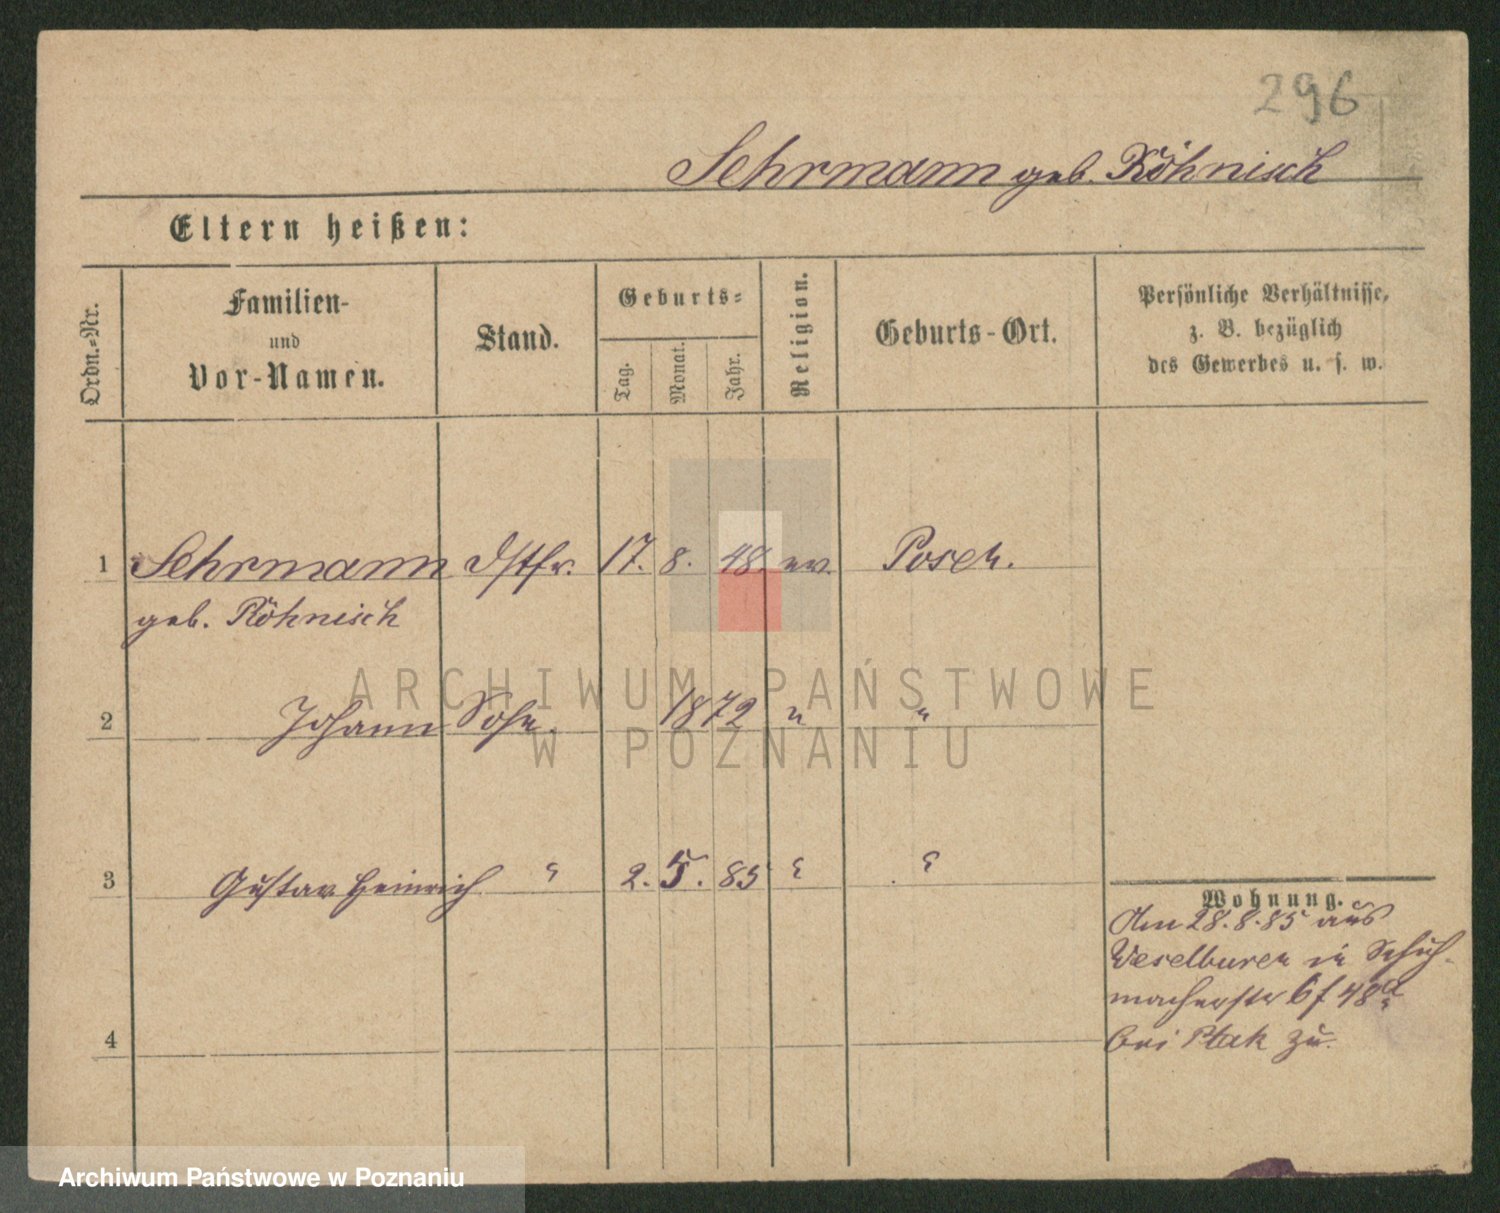 296
Sehrmann geb. Röhnisch
Eltern heißen:
Ordn.-Nr.
Familien-
und
Vor-Namen.
Stand.
Geburts-
Tag.
Monat.
Jahr.
Religion.
Geburts-Ort.
Persönliche Verhältnisse,
z. B. bezüglich
des Gewerbes u. s. w.
1 Sehrmann 17. 8. 48. ev. Posen.
geb. Röhnisch
2 Johann Sohn. 1872 " "
3 Gustav Heinrich " 2. 5. 85 " "
4
Wohnung.
Am 28.8.85 aus
Weselburen in Schuh-
macherstr 6 f 48
bei Ptak zu.
ARCHIWUM PAŃSTWOWE
W POZNANIU
Archiwum Państwowe w Poznaniu